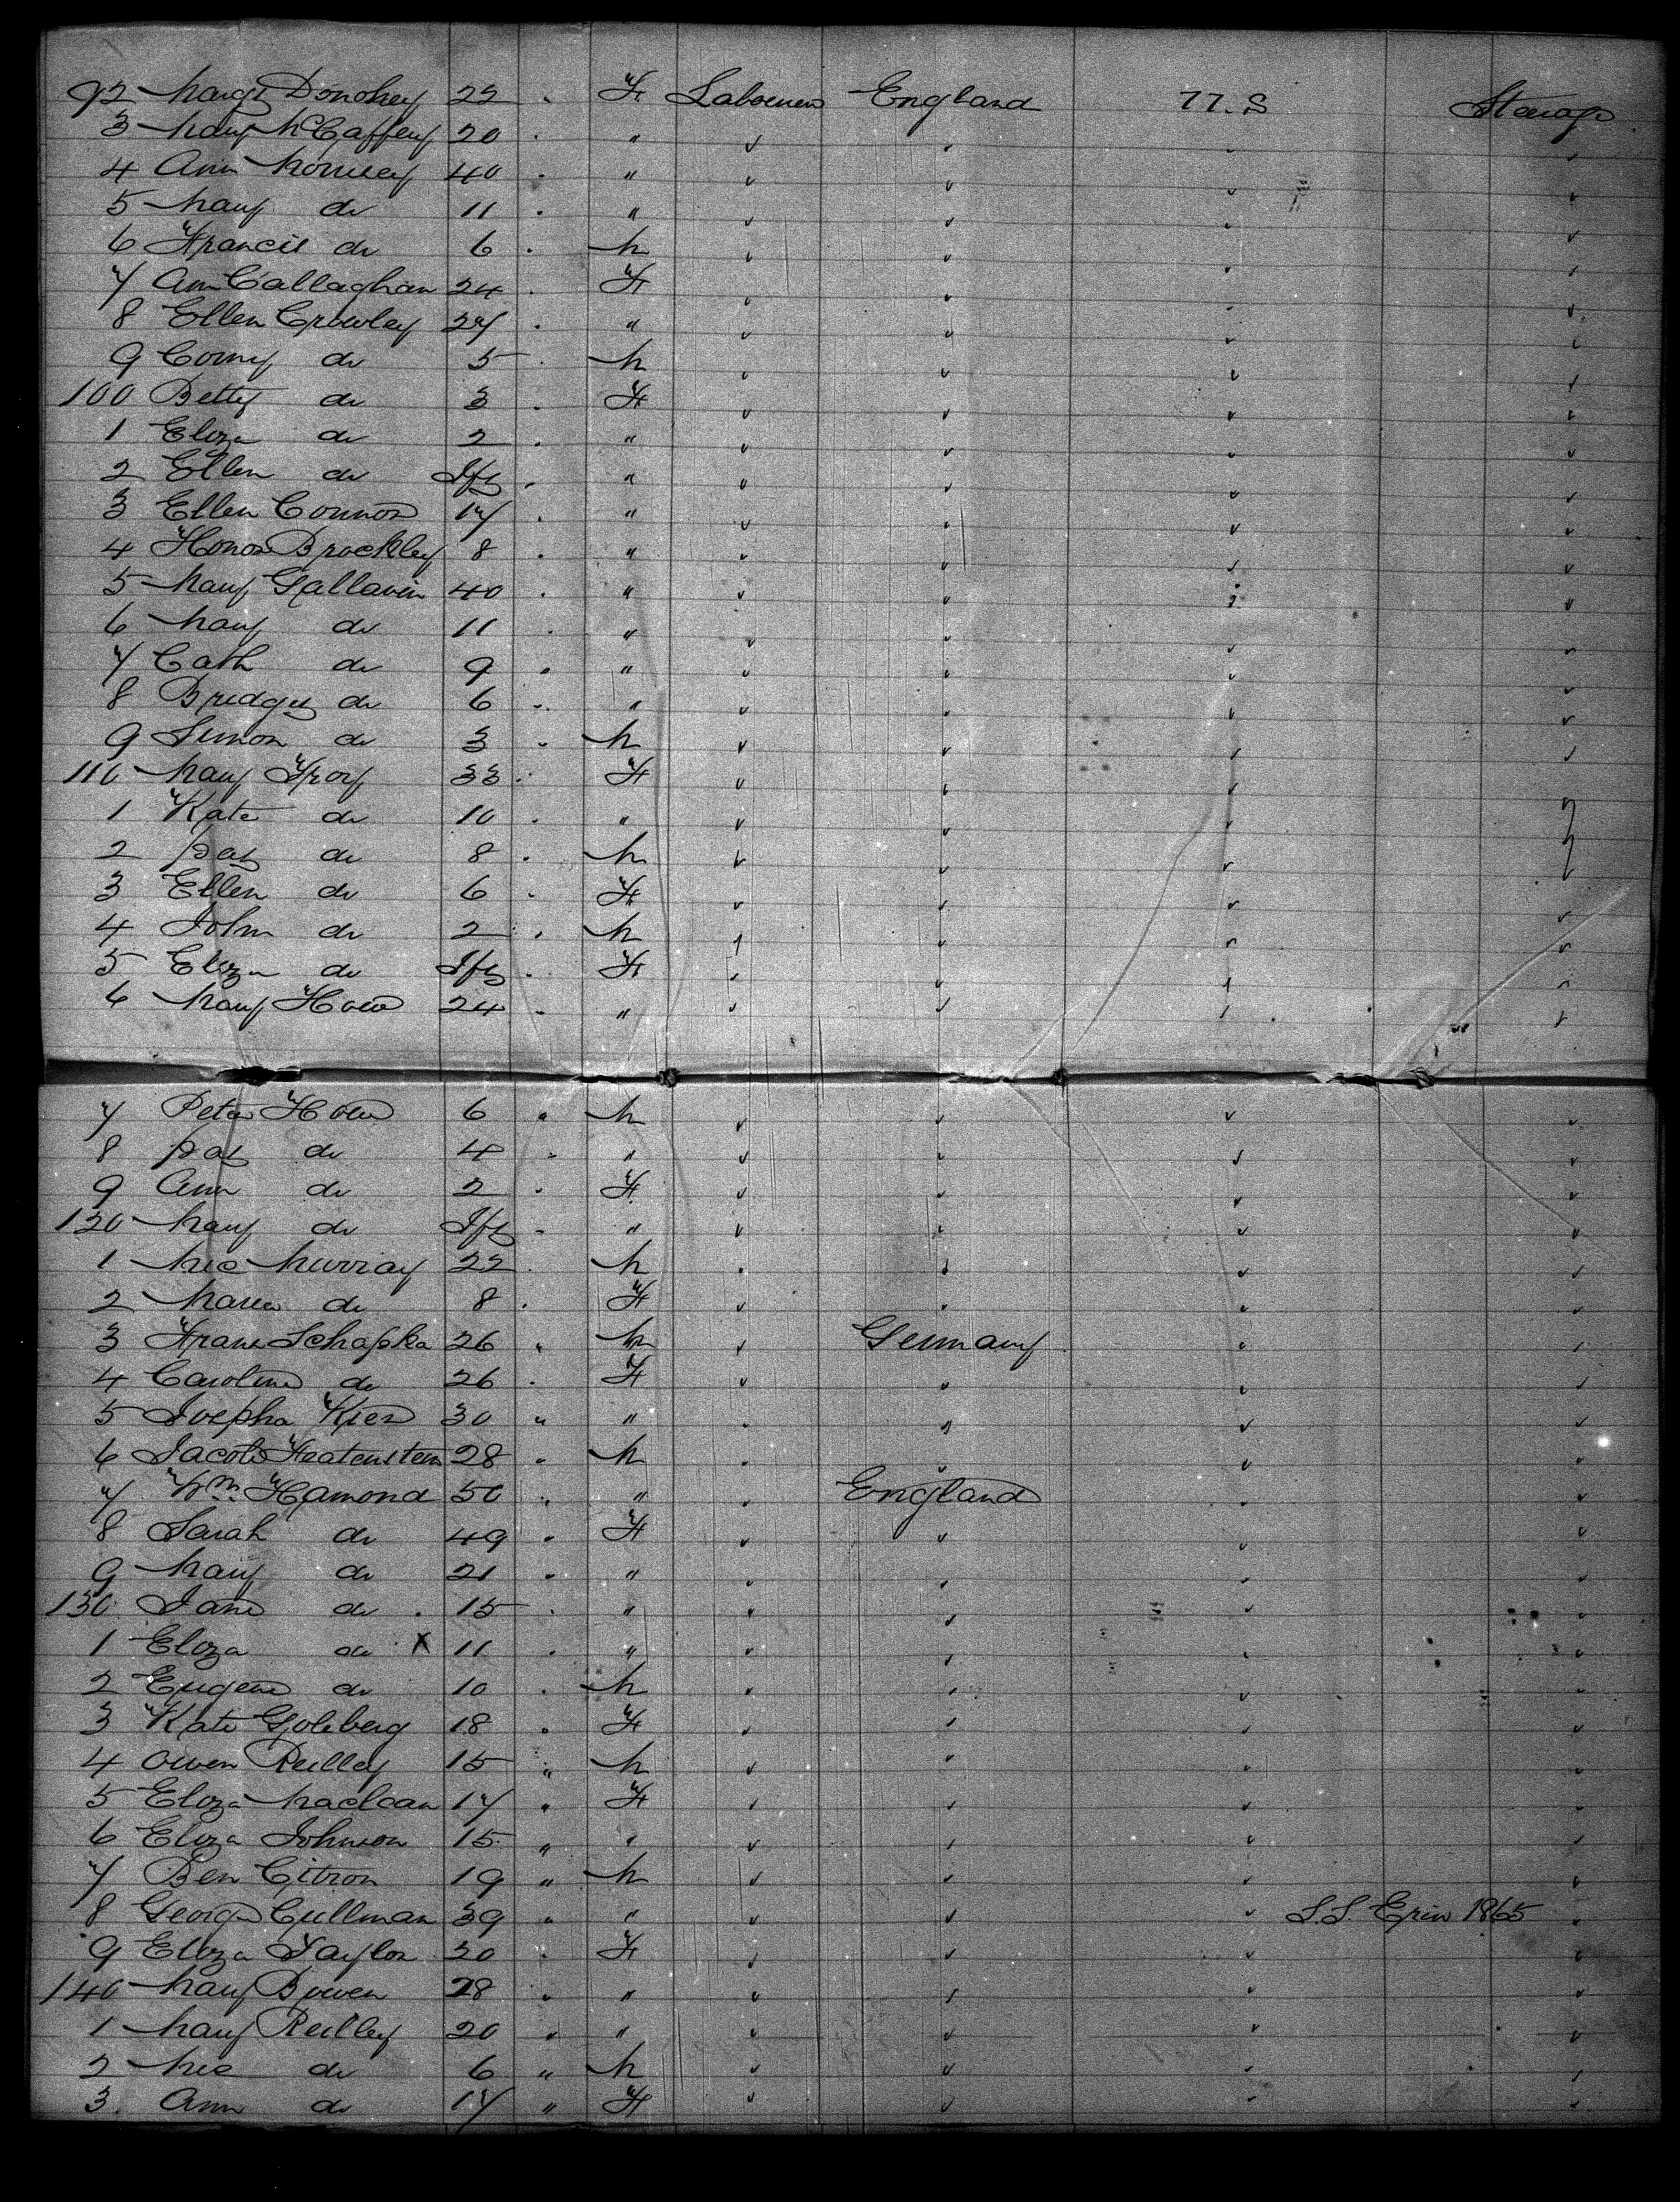 92 Margt Donohey 22 " F Labourers England U.S Steerage
3 Mary McCaffery 20 " "
4 Ann 40 " "
5 Mary do 11 " "
6 Francis do 6 " M
7 Ann Callaghan 24 " F
8 Ellen Crowley 27 " "
9 Corny do 5 " M
100 Betty do 3 " F
1 Eliza do 2 " "
2 Ellen do Ift " "
3 Ellen Connor 17 " "
4 Honor Brockley 8 " "
5 Mary Gallavin 40 " "
6 Mary do 11 " "
7 Cath do 9 " "
8 Bridget do 6 " "
9 Simon do 3 " M
110 Mary Troy 33 " F
1 Kate do 10 " "
2 Pat do 8 " M
3 Ellen do 6 " F
4 John do 2 " M
5 Eliza do Ift " F
6 Mary 24 " "
7 Peter 6 " M
8 Pat do 4 " "
9 Ann do 2 " F
120 Mary do Ift " "
1 Mic Murray 22 " M
2 Maria do 8 " F
3 Franz Schapka 26 " M Germany
4 Caroline do 26 " F
5 Josepha 30 " "
6 Jacob 28 " M
7 Wm Hamond 50 " " England
8 Sarah do 49 " F
9 Mary do 21 " "
130 Jane do 15 " "
1 Eliza do X 11 " "
2 Eugene do 10 " M
3 Kate Goleberg 18 " F
4 Owen Reilley 15 " M
5 Eliza Maclean 17 " F
6 Eliza Johnson 15 " "
7 Ben Citron 19 " M
8 George Cullman 39 " " S.S. Erin 1865
9 Eliza Taylor 20 " F
140 Mary Bowen 28 " "
1 Mary Reilley 20 " "
2 Mic do 6 " M
3 Ann do 17 " F